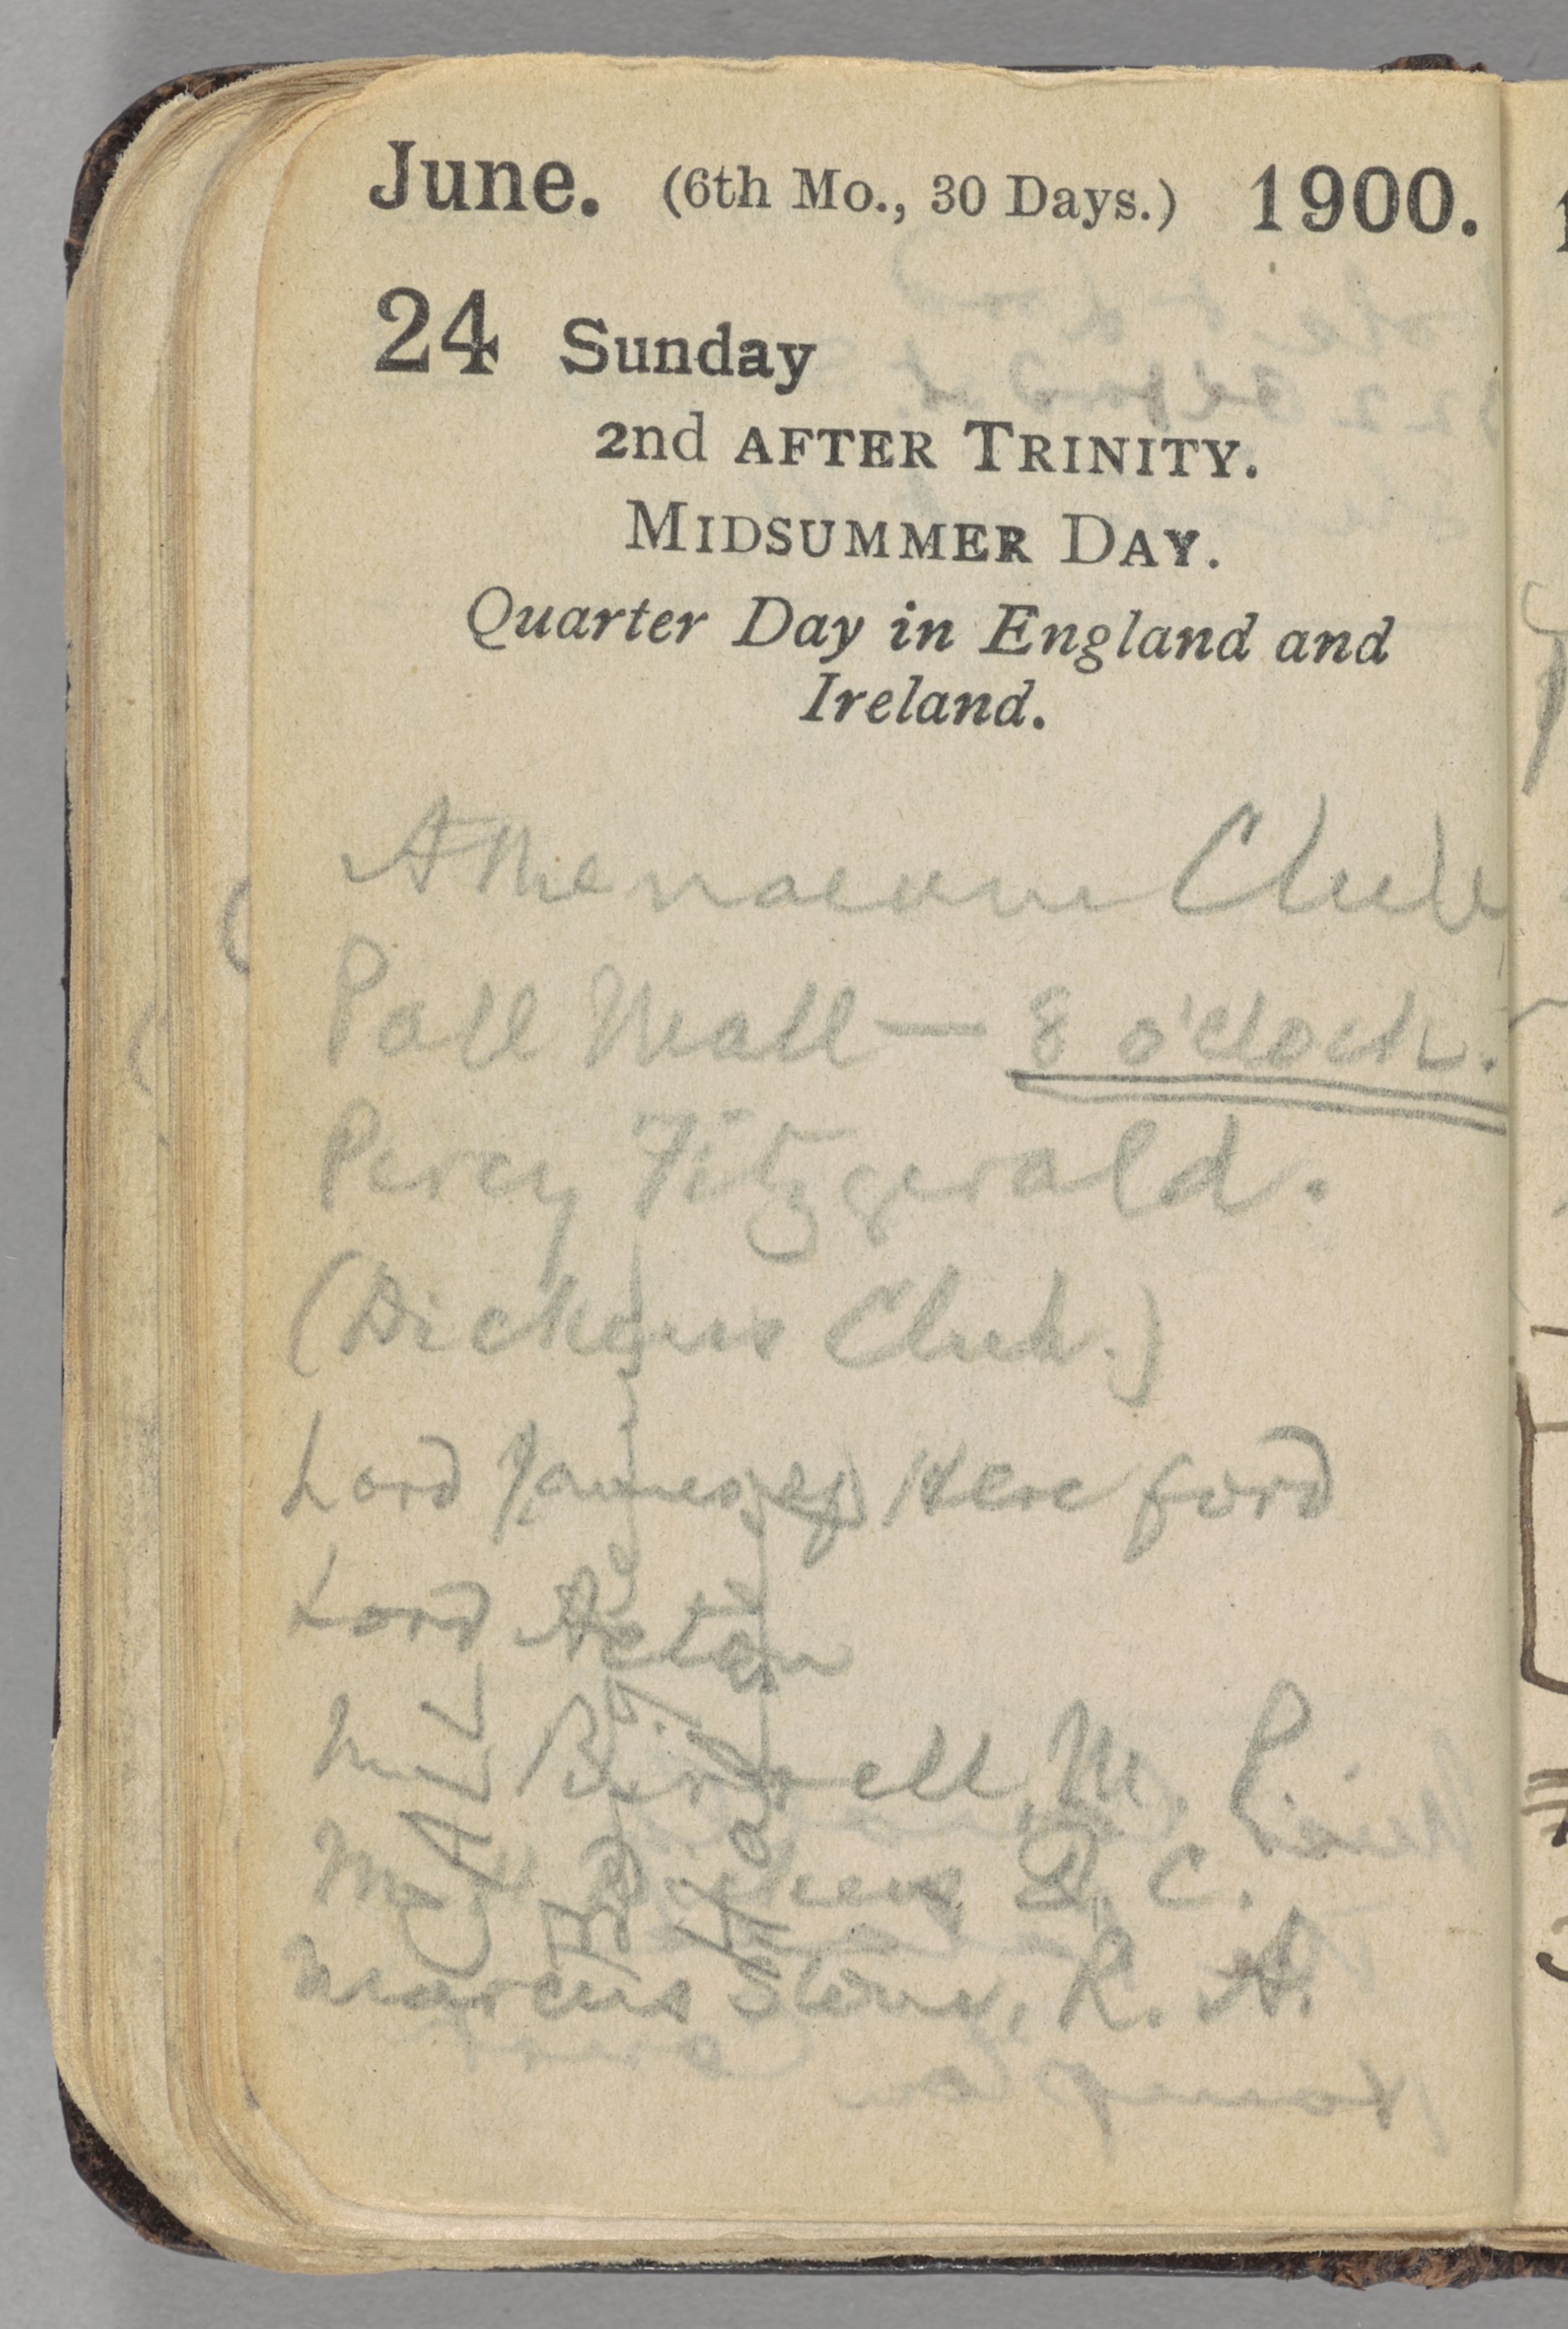 June. (6th Mo., 30 Days.) 1900.
24 Sunday
2nd AFTER TRINITY.
MIDSUMMER DAY.
Quarter Day in England and
Ireland.
Athenaeum Club
Pall Mall — 8 o'clock.
Percy Fitzgerald.
(Dickens Club.)
Lord James of Hereford
Lord Acton
Mr Birrell, M. P.
Mr Dickens Q. C.
Marcus Stone, R. A.